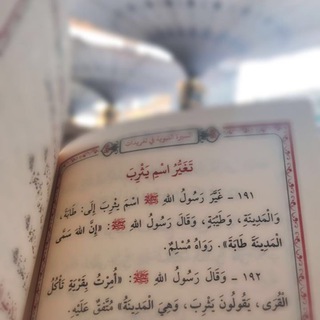 السيرة النبوية في تغريدات
تَغَيُّرُ اسْمِ يَثْرِبَ
١٩١ - غَيَّرَ رَسُولُ اللهِ ﷺ اسْمَ يَثْرِبَ إِلَى: طَابَةَ،
وَالْمَدِينَةِ، وَطَيْبَةِ، وَقَالَ رَسُولُ اللهِ ﷺ: «إِنَّ اللهَ سَمَّى
الْمَدِينَةَ طَابَةَ». رَوَاهُ مُسْلِمٌ.
١٩٢ - وَقَالَ رَسُولُ اللهِ ﷺ: «أُمِرْتُ بِقَرْيَةٍ تَأْكُلُ
الْقُرَى، يَقُولُونَ يَثْرِبَ، وَهِيَ الْمَدِينَةُ» مُتَّفَقٌ عَلَيْهِ.